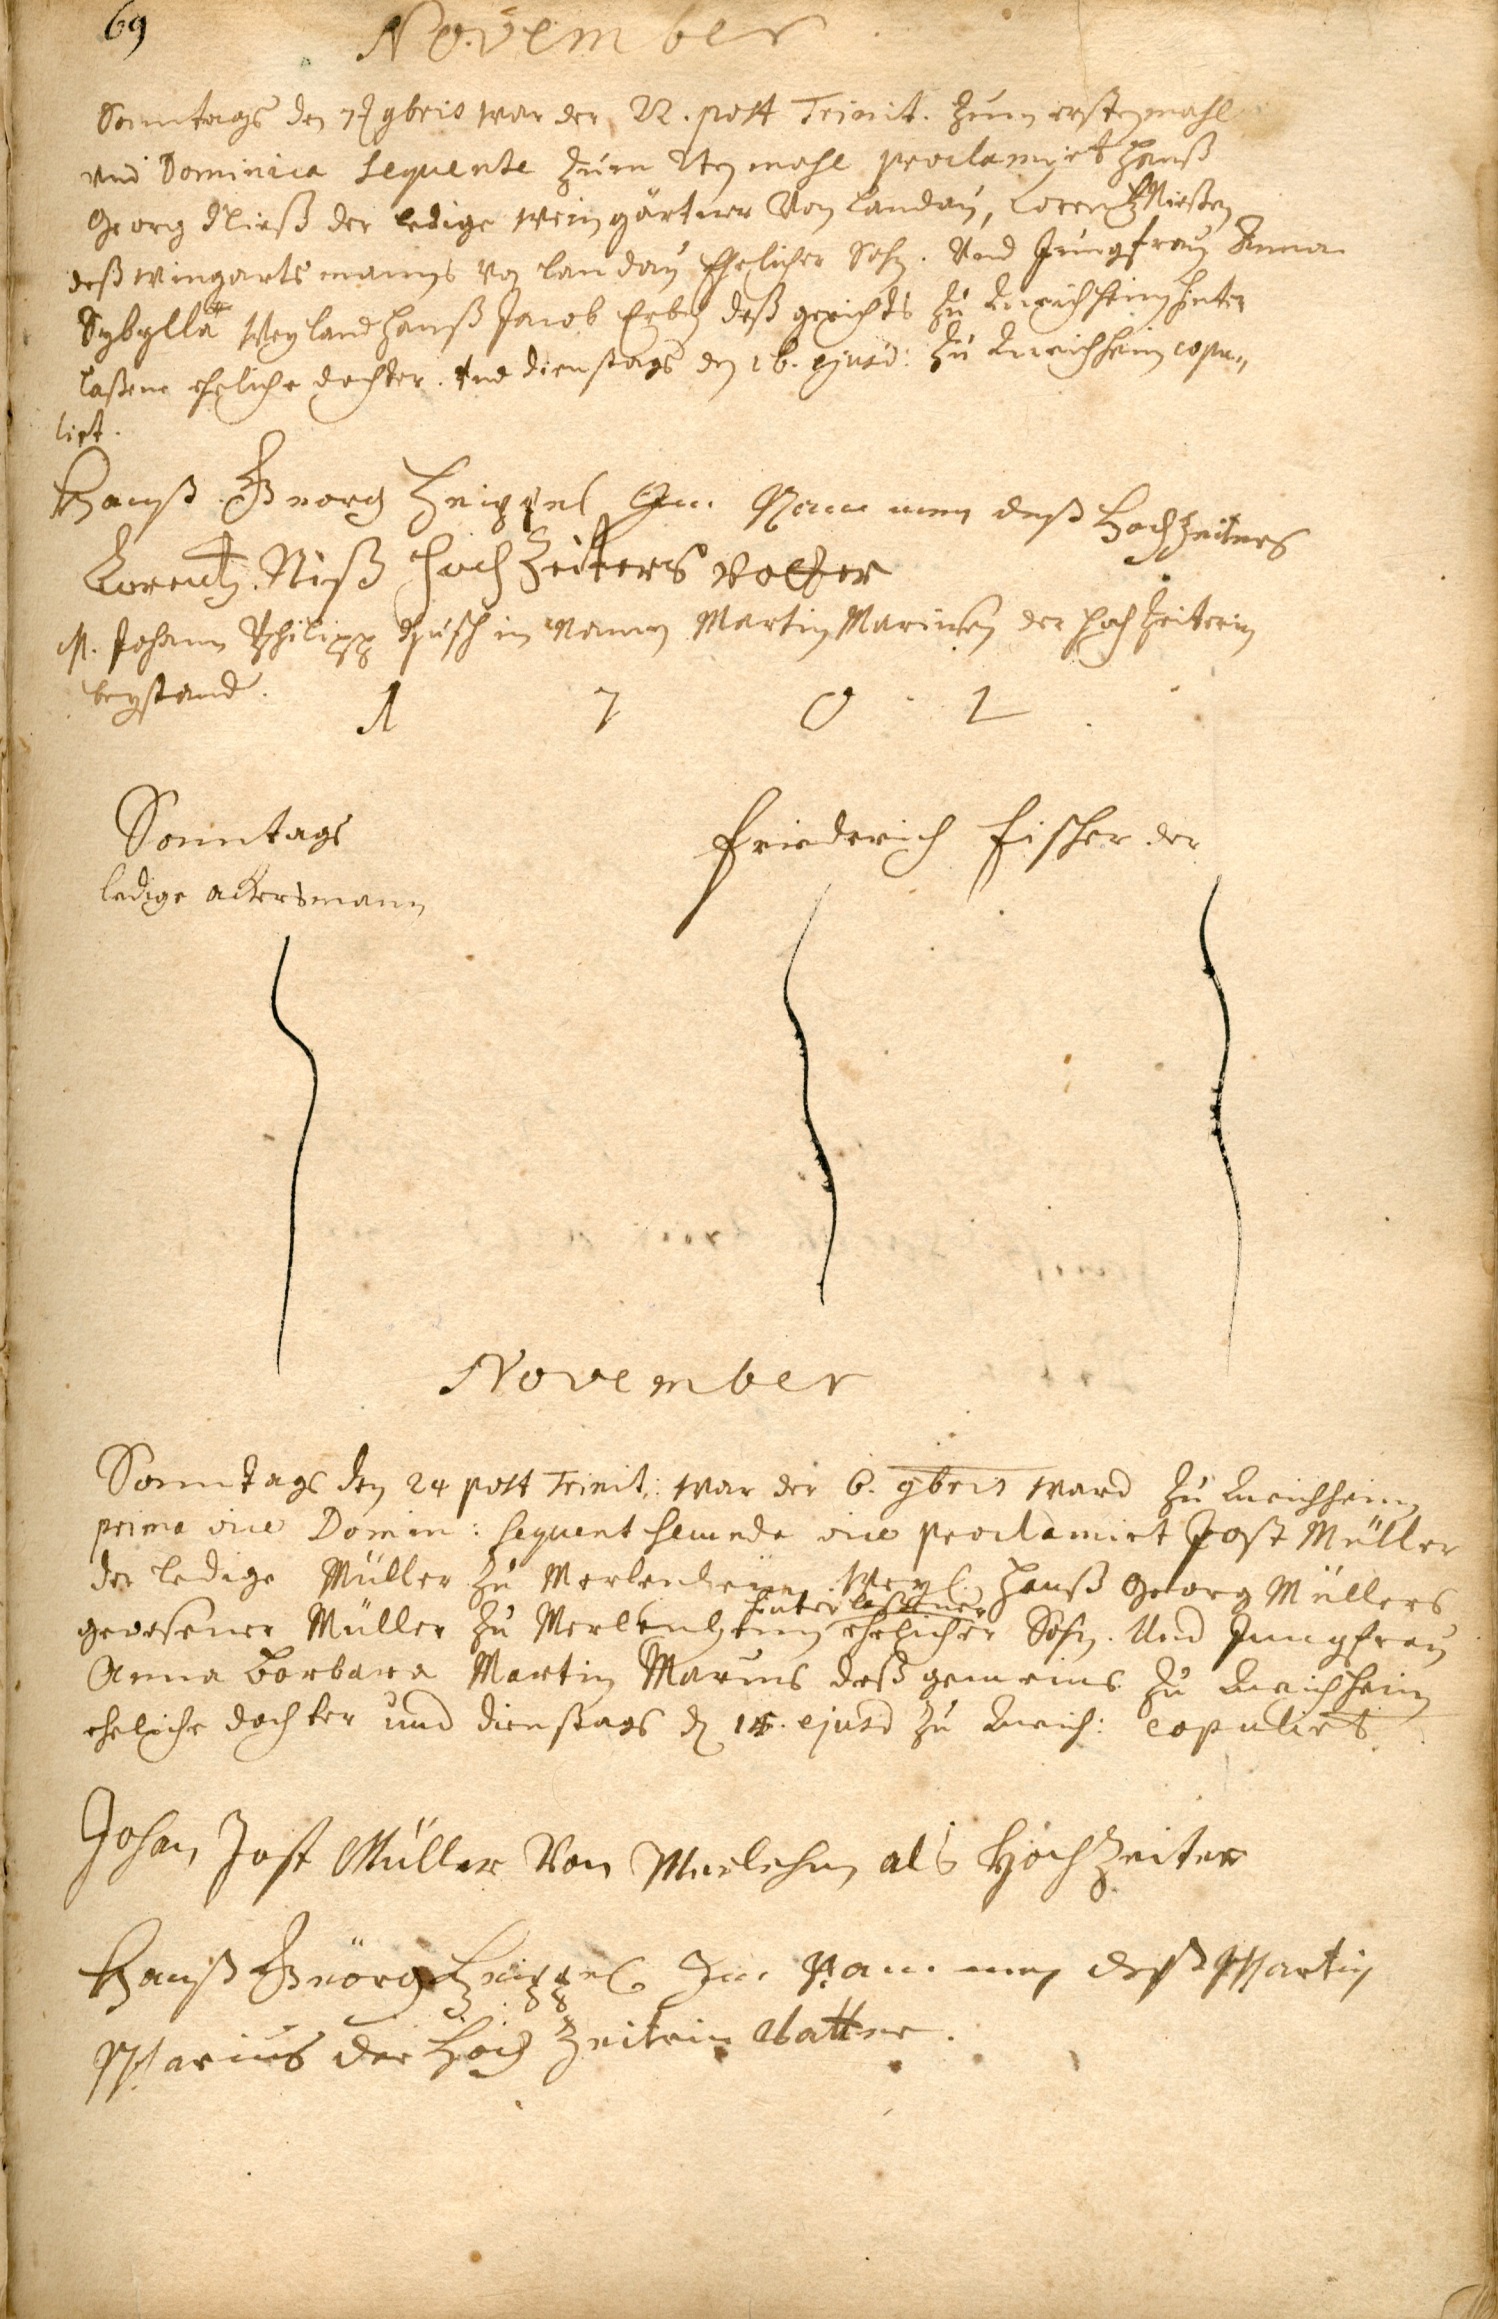 69
November
Sonntags den 7t 9bris war der 22. post Trinit. zum ersten mahl
und Dominica sequente zum 2ten mahl proclamirt Hanß
Georg Nieß der ledige weingärtner von Landau, Lorentz Nießen
deß wingartsmanns von Landau Ehelicher Sohn. Und Jungfrau Anna
Sybylla Weyland Hanß Jacob Erben deß gerichts zu Queichheim hinter
laßene eheliche dochter. und dienstags den 16. ejusd: zu Queichheim copu„
lirt.
Hanß Georg Heippel Im Nammen deß Hochzeiters
Lorentz Niß Hochzeiters vatter
M. Johann Philipp in namen Martin Marinßen der Hochzeiterin
beystand.
1 7 0 1
Sonntags Friederich Fischer der
ledige ackersmann
November
Sonntags den 24 post Trinit: war der 6. 9bris ward zu Queichheim
prima vice Domin: sequent secunda vice proclamirt Jost Müller
der ledige Müller zu Merlenheim, Weyl. Hanß Georg Müllers
hinterlaßener
gewesener Müller zu Merlenheim ehelicher Sohn. Und Jungfrau
Anna Barbara Martin Marins deß gemeins zu Queichheim
eheliche dochter und dienstags d 15. ejusd zu Queich: copulirt.
Johan Jost Müller von als Hochzeiter
Hanß Geörg Heippel Im Nammen deß Martin
Marius der Hochzeitrin Vatter.